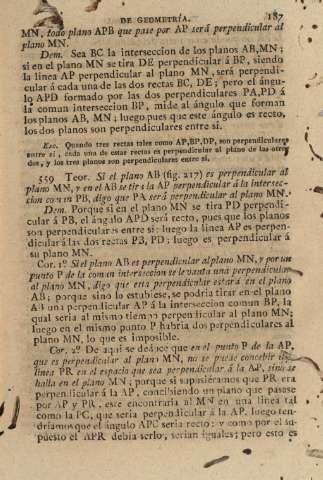 DE GEOMETRÍA. 187
MN, todo plano APB que pase por AP será perpendicular al
plano MN.
Dem. Sea BC la interseccion de los planos AB, MN;
si en el plano MN se tira DE perpendicular á BP, siendo
la linea AP perpendicular al plano MN, será perpendi-
cular á cada una de las dos rectas BC, DE; pero el ángu-
lo APD formado por las dos perpendiculares PA, PD á
la comun interseccion BP, mide al ángulo que forman
los planos AB, MN; luego pues que este ángulo es recto,
los dos planos son perpendiculares entre sí.
Esc. Quando tres rectas tales como AP, BP, DP, son perpendiculares
entre sí, cada una de estas rectas es perpendicular al plano de las otras
dos, y los tres planos son perpendiculares entre sí.
559 Teor. Si el plano AB (fig. 217) es perpendicular al
plano MN, y en el AB se tira la AP perpendicular á la intersec-
cion comun PB, digo que PA será perpendicular al plano MN.
Dem. Porque si en el plano MN se tira PD perpendi-
cular á PB, el ángulo APD será recto, pues que los planos
son perpendiculares entre sí: luego la AP es perpen-
dicular á las dos rectas PB, PD; luego es perpendicular á
su plano MN.
Cor. 1º Si el plano AB es perpendicular al plano MN, y por un
punto P de la comun interseccion se levanta una perpendicular
al plano MN, digo que esta perpendicular estará en el plano
AB; porque sino lo estubiese, se podria tirar en el plano
AB una perpendicular AP á la interseccion comun BP, la
qual seria al mismo tiempo perpendicular al plano MN;
luego en el mismo punto P habria dos perpendiculares al
plano MN, lo que es imposible.
Cor. 2º De aquí se deduce que en el punto P de la AP,
que es perpendicular al plano MN, no se puede concebir
linea PR en el espacio que sea perpendicular á la AP, sino se
halla en el plano MN; porque si suponemos que PR era
perpendicular á la AP, concibiendo un plano que pasase
por AP y PR, este encontraria al MN en una linea tal
como la PC, que seria perpendicular á la AP. luego ten-
driamos que el ángulo APC seria recto; y como por el su-
puesto el APR debia serlo, serian iguales; pero esto es